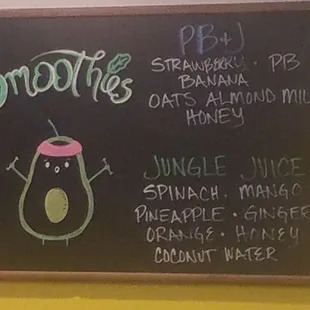 Smoothies
PB+J
STRAWBERRY · PB
BANANA
OATS ALMOND MIL
HONEY
JUNGLE JUICE
SPINACH · MANGO
PINEAPPLE · GINGER
ORANGE · HONEY
COCONUT WATER